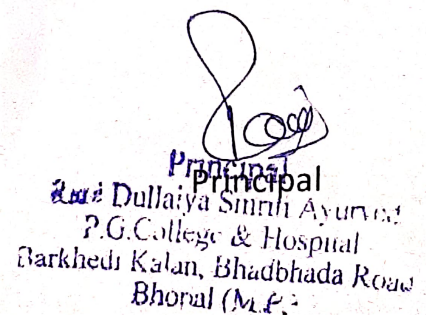 Principal
Principal
Rani Dullaiya Smriti Ayurved
P.G.College & Hospital
Barkhedi Kalan, Bhadbhada Road
Bhopal (M.P.)